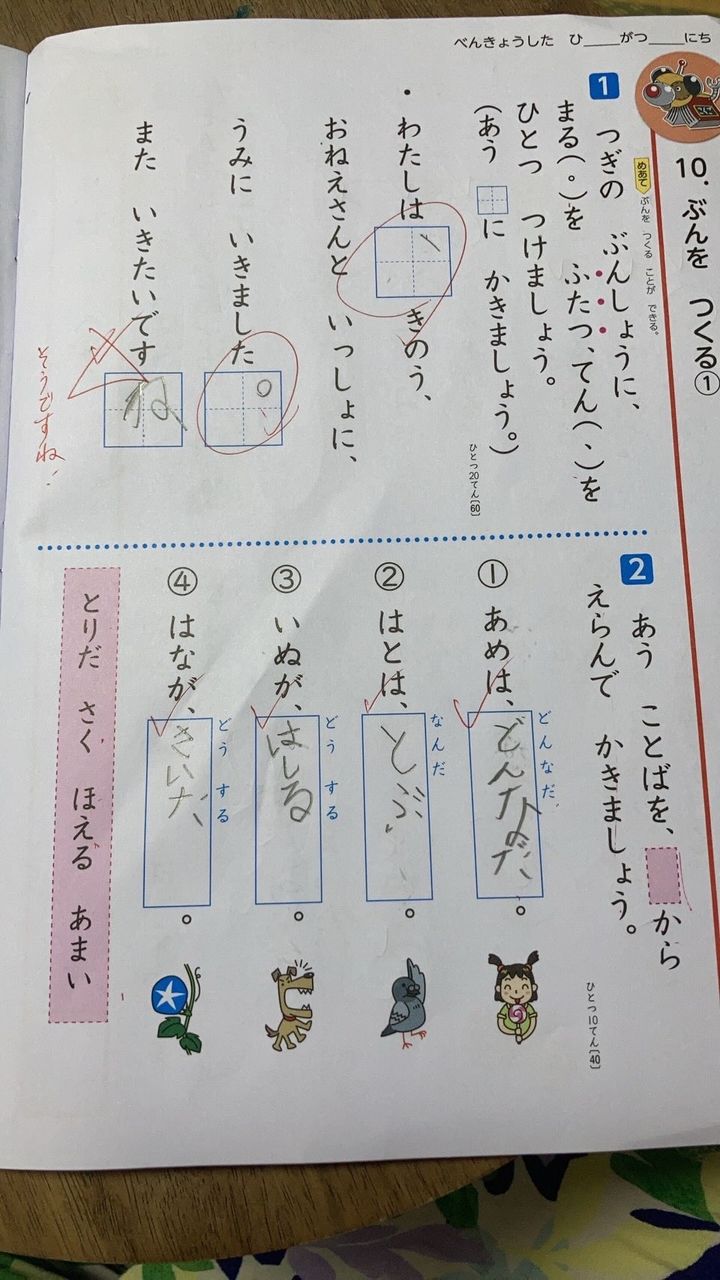 べんきょうした ひ＿＿がつ＿＿にち
10. ぶんを つくる①
めあて ぶんを つくる ことが できる。
1 つぎの ぶんしょうに、
まる(。)を ふたつ、てん(、)を
ひとつ つけましょう。
(あう □に かきましょう。)
ひとつ20てん〔60〕
・わたしは、きのう、
おねえさんと いっしょに、
うみに いきました。
また いきたいですね
そうですね!
2 あう ことばを、□から
えらんで かきましょう。
ひとつ10てん〔40〕
どんなだ
① あめは、どんなだ。
なんだ
② はとは、とぶ。
どう する
③ いぬが、はしる。
どう する
④ はなが、きいだ。
とりだ さく ほえる あまい